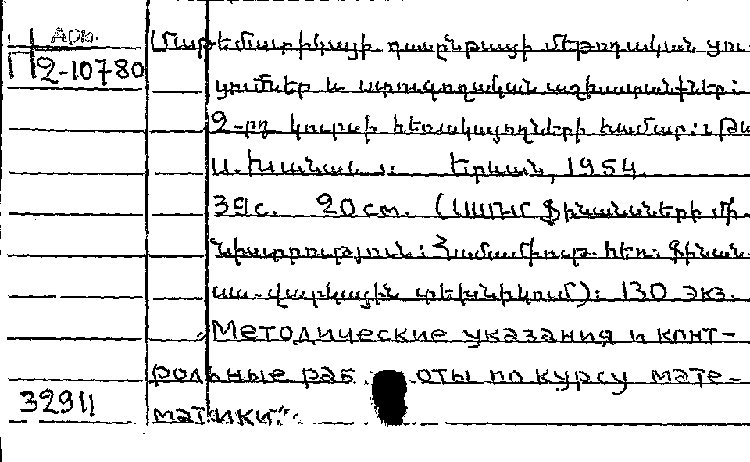 Арм.
П2-10780
Մաթեմատիկայի դասընթացի մեթոդական ցու-
ցումներ և ստուգողական աշխատանքներ:
2-րդ կուրսի հեռակայողների համար:
Երևան, 1954.
39с. 20см. (ՍՍՌՄ Ֆինանսների մի-
նիստրություն: Համամիութ. հեռ. ֆինան-
սա-վարկային տեխնիկում): 130 экз.
Методические указания и конт-
рольные раб оты по курсу мате-
матики".
32911